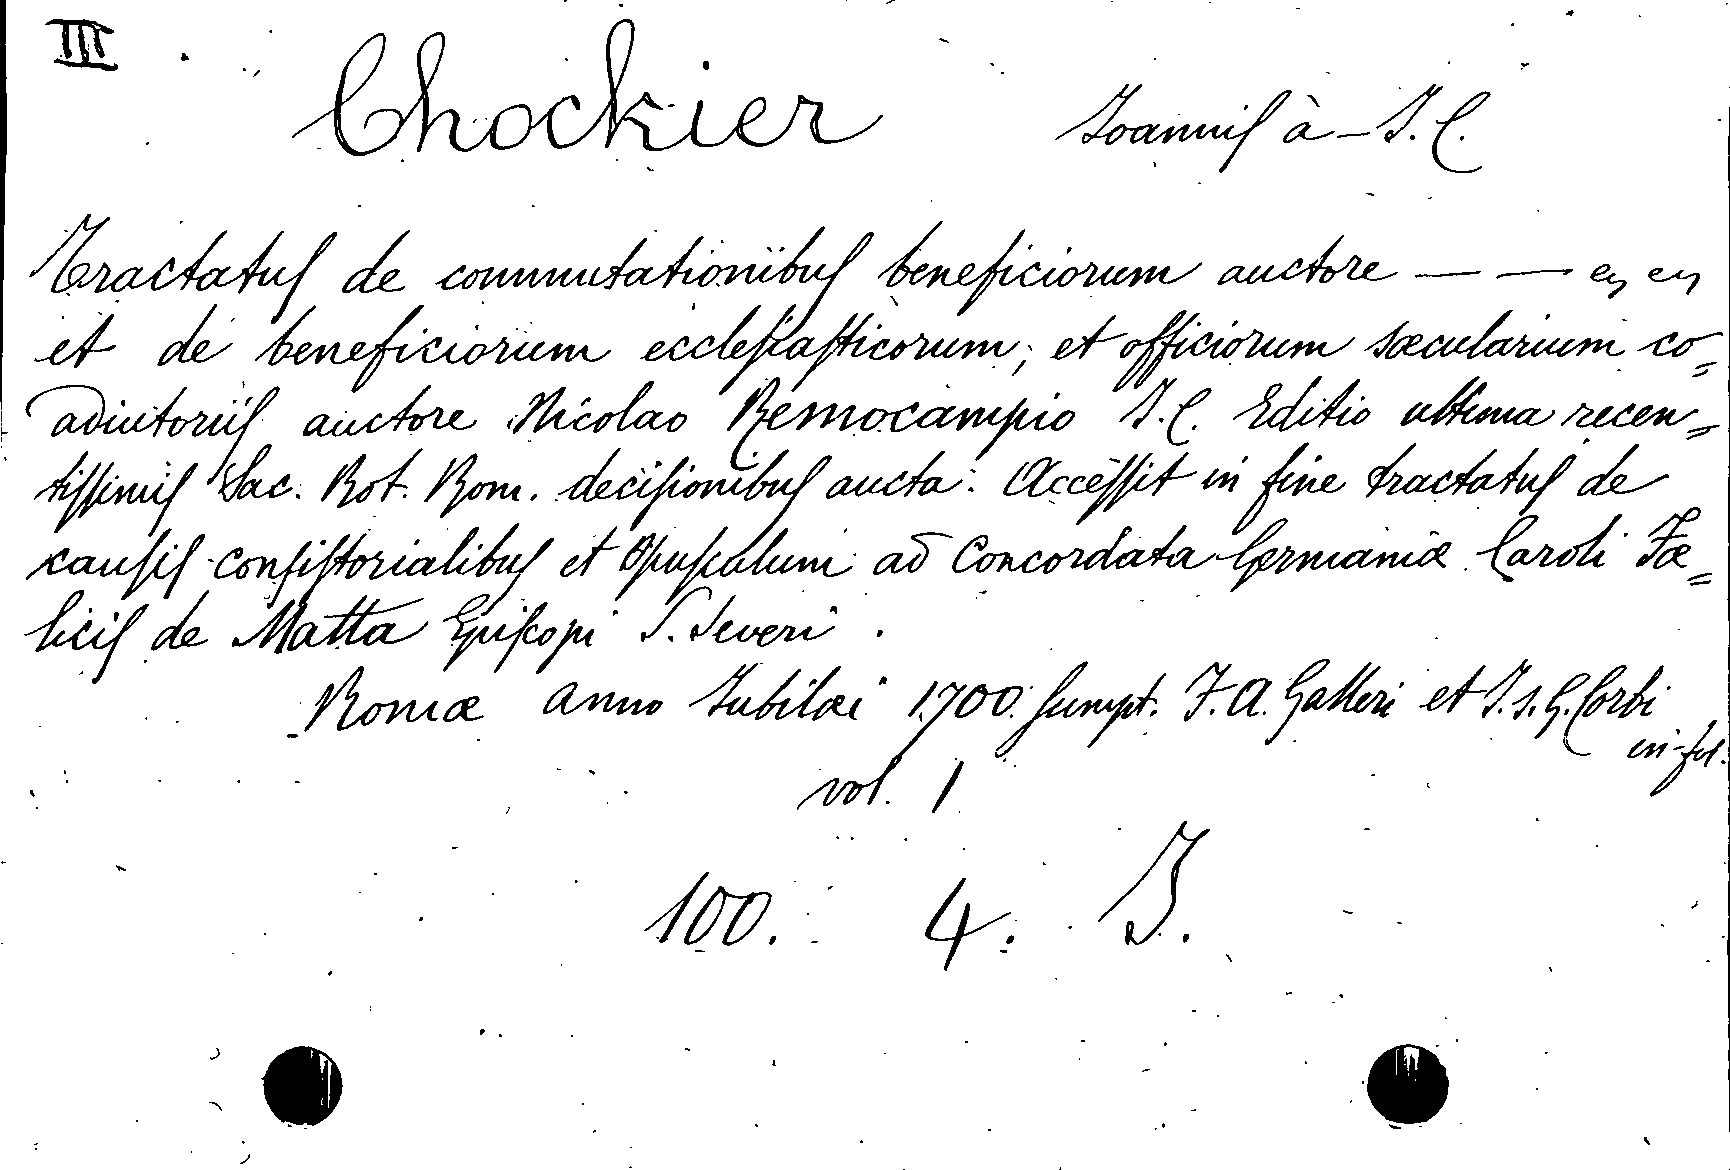 III
Chockier Joannis à – J. C.
Tractatus de commutationibus beneficiorum auctore — —
et de beneficiorum ecclesiasticorum, et officiorum sæcularium co=
adiutoriis auctore Nicolao Remocampio J. C. Editio ultima recen=
tissimis Sac. Rot. Rom. decisionibus aucta. Accessit in fine tractatus de
causis consistorialibus et Opusculum ad Concordata Germaniæ Caroli Fæ=
licis de Matta Episcopi S. Severi.
Romæ anno Jubilæi 1700. sumpt. F. A. Galleri et J. s. G. Corbi
in-fol.
vol. 1
100. 4. J.